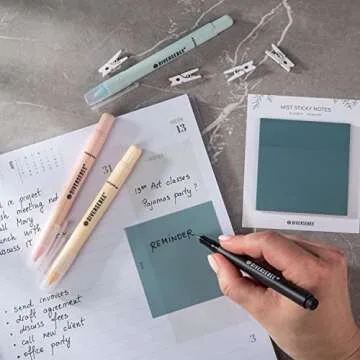 DIVERSEBEE
WEEK
13
MIST STICKY NOTES
DIVERSEBEE
DIVERSEBEE
DIVERSEBEE
31
13:00 Art classes
Pajamas party ?
a project
meeting
call Mary
lunch with
discuss
REMINDER
DIVERSEBEE
DIVERSEBEE
• send invoices
• draft agreement
• discuss fees
• call new client
• office party
3